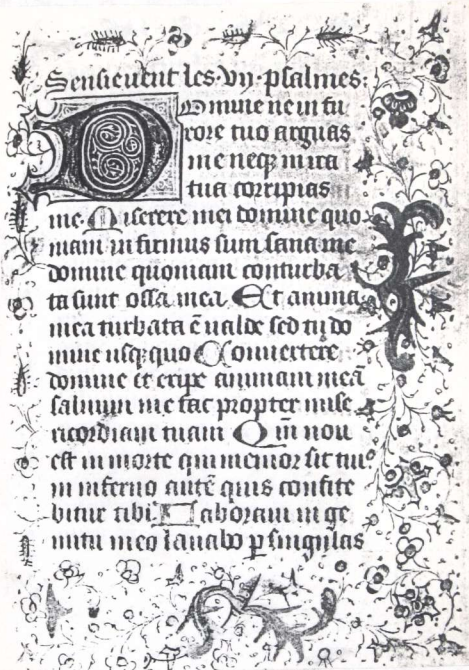 Sensieuent les .vij. psalmes.
Domine ne in fu
rore tuo arguas
me neqz in ira
tua corripias
me. Miserere mei domine quo
niam infirmus sum sana me
domine quoniam conturba
ta sunt ossa mea Et anima
mea turbata ē ualde sed tu do
mine usqz quo Conuertere
domine et eripe animam meā
saluum me fac propter mise
ricordiam tuam Qm̄ non
est in morte qui memor sit tui
in inferno autē quis confite
bitur tibi Laboraui in ge
mitu meo lauabo p singulas